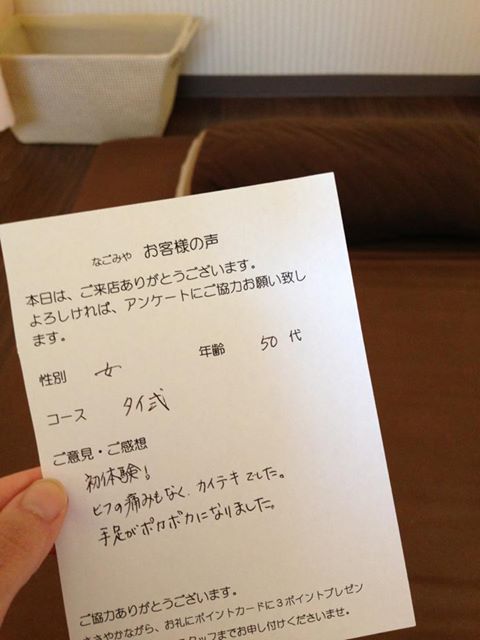 なごみや お客様の声
本日は、ご来店ありがとうございます。
よろしければ、アンケートにご協力お願い致し
ます。
性別 女 年齢 50 代
コース タイ式
ご意見・ご感想
初体験!
ヒフの痛みもなく、カイテキでした。
手足がポカポカになりました。
ご協力ありがとうございます。
ささやかながら、お礼にポイントカードに3ポイントプレゼン
スタッフまでお申し付けくださいませ。